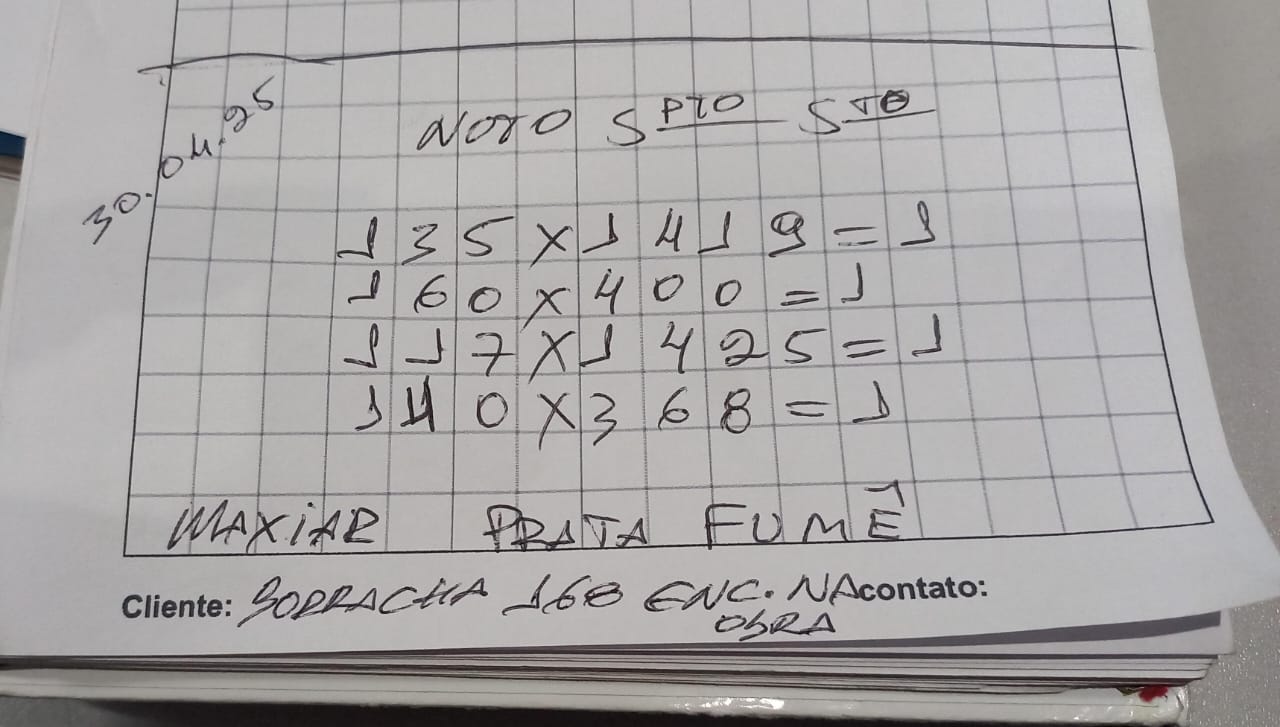 30.04.25
NOVO SPTO STO
135X1419=1
160X400=1
117X1425=1
140X368=1
MAXIAR PRATA FUMÊ
Cliente: BORRACHA 168 ENC. NA contato:
OBRA